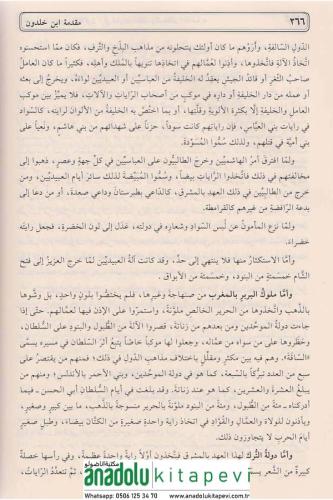 مقدمة ابن خلدون ٣٦٦
الدول السالفة، وأرَوْهم ما كان أولئك ينتحلونه من مذاهب البذخ والترف، فكان مما استحسنوه
اتخاذ الآلة فاتّخذوها، وأذنوا لعمّالهم في اتخاذها تنويهاً بالملك وأهله، فكثيراً ما كان العاملُ
صاحبُ الثغر أو قائد الجيش يعقد له الخليفةُ من العباسيين أو العبيديين لواءَه، ويخرج إلى بعثه
أو عمله من دار الخليفة أو داره في موكب من أصحاب الرايات والآلات، فلا يميز بين موكب
العامل والخليفة إلّا بكثرة الألوية وقلّتها، أو بما اختصّ به الخليفة من الألوان لرايته، كالسواد
في رايات بني العبّاس، فإن راياتهم كانت سوداً، حزناً على شهدائهم من بني هاشم، ونعياً على
بني أميّة في قتلهم، ولذلك سُمّوا المُسوّدة.
ولمّا افترق أمرُ الهاشميّين وخرج الطالبيّون على العباسيّين في كلّ جهةٍ وعصرٍ، ذهبوا إلى
مخالفتهم في ذلك فاتّخذوا الرايات بيضاً، وسُمّوا المُبيّضةَ لذلك سائرَ أيام العبيديّين، ومن
خرج من الطالبيّين في ذلك العهد بالمشرق، كالداعي بطبرستان وداعي صعدة، أو من دعا إلى
بدعة الرّافضة من غيرهم كالقرامطة.
ولمّا نزع المأمونُ عن لُبس السواد وشعاره في دولته، عدَل إلى لون الخضرة، فجعل رايته
خضراء.
وأمّا الاستكثار منها فلا ينتهي إلى حدّ، وقد كانت آلة العبيديّين لمّا خرج العزيز إلى فتح
الشّام خمسَمئة من البنود، وخمسَمئة من الأبواق.
وأمّا ملوكُ البربر بالمغرب من صنهاجة وغيرها، فلم يختصّوا بلونٍ واحدٍ، بل وشّوها
بالذهب واتّخذوها من الحرير الخالص ملوّنةً، واستمرّوا على الإذن فيها لعمّالهم. حتّى إذا
جاءت دولة الموحّدين ومن بعدهم من زناتة، قصروا الآلة من الطبول والبنود على السلطان،
وحظَروها على من سواه من عمّاله، وجعلوا لها موكباً خاصّاً يتبعُ أثرَ السلطان في مسيره يسمى
«السّاقة»، وهم فيه بين مكثرٍ ومقلّلٍ باختلاف مذاهب الدول في ذلك؛ فمنهم من يقتصرُ على
سبع من العدد تبرُّكاً بالسبعة، كما هو في دولة الموحّدين، وبني الأحمر بالأندلس؛ ومنهم من
يبلغُ العشرةَ والعشرين، كما هو عند زناتة. وقد بلغت في أيام السلطان أبي الحسن ـ فيما
أدركناه ـ مئة من الطبول، ومئة من البنود ملوّنةً بالحرير منسوجةً بالذهب، ما بين كبيرٍ وصغيرٍ،
ويأذنون للولاة والعمّال والقوّاد في اتخاذ راية واحدة صغيرةٍ من الكتّان بيضاءَ، وطبل صغير
أيام الحرب لا يتجاوزون ذلك.
وأمّا دولة التُرك لهذا العهد بالمشرق فيتّخذون أوّلاً رايةً واحدةً عظيمةً، وفي رأسها خصلة
كبيرة من الشّعر
ثم تتعدّدُ الرايات،
مكتبة
anadolu kitapevi
Whatsapp: 0506 125 34 70 www.anadolukitapevi.com.tr